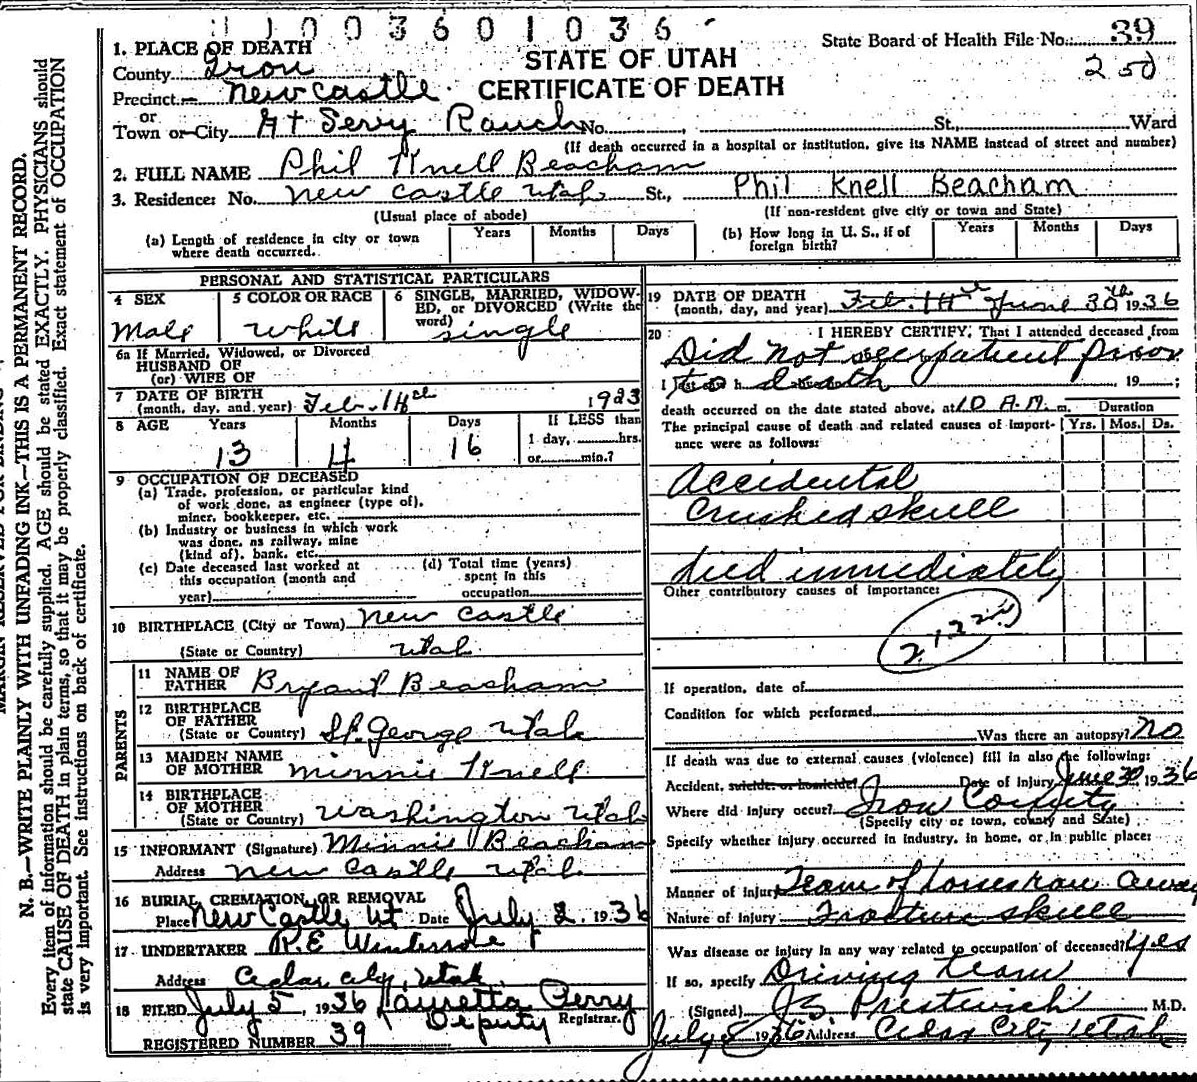 1 1 0 0 3 6 0 1 0 3 6
1. PLACE OF DEATH
County Iron
Precinct New castle
or
Town or City At Servy Ranch No. St., Ward
STATE OF UTAH
CERTIFICATE OF DEATH
State Board of Health File No. 39
(If death occurred in a hospital or institution, give its NAME instead of street and number)
2. FULL NAME Phil Knell Beacham
3. Residence: No. New castle Utah St., Phil Knell Beacham
(Usual place of abode) (If non-resident give city or town and State)
(a) Length of residence in city or town where death occurred. Years Months Days
(b) How long in U. S., if of foreign birth? Years Months Days
PERSONAL AND STATISTICAL PARTICULARS
4 SEX Male
5 COLOR OR RACE White
6 SINGLE, MARRIED, WIDOWED, or DIVORCED (Write the word) Single
6a If Married, Widowed, or Divorced
HUSBAND OF
(or) WIFE OF
7 DATE OF BIRTH
(month, day, and year) Feb. 14 1923
8 AGE Years 13 Months 4 Days 16 If LESS than
1 day, hrs.
or min.?
9 OCCUPATION OF DECEASED
(a) Trade, profession, or particular kind
of work done, as engineer (type of),
miner, bookkeeper, etc.
(b) Industry or business in which work
was done, as railway, mine
(kind of), bank, etc.
(c) Date deceased last worked at
this occupation (month and
year)
(d) Total time (years)
spent in this
occupation
10 BIRTHPLACE (City or Town) New Castle
(State or Country) Utah
PARENTS
11 NAME OF
FATHER Bryant Beacham
12 BIRTHPLACE
OF FATHER
(State or Country) St. George Utah
13 MAIDEN NAME
OF MOTHER Minnie Knell
14 BIRTHPLACE
OF MOTHER
(State or Country) Washington Utah
15 INFORMANT (Signature) Minnie Beacham
Address New Castle Utah
16 BURIAL, CREMATION, OR REMOVAL
Place New Castle Ut Date July 2, 1936
17 UNDERTAKER R.E.
Address Cedar City, Utah
18 FILED July 5, 1936 Lauretta Perry
Deputy Registrar.
REGISTERED NUMBER 39
19 DATE OF DEATH
(month, day, and year) Feb. 14th June 30th 1936
20 I HEREBY CERTIFY, That I attended deceased from
Did not see patient prior
to death , 19 ;
death occurred on the date stated above, at 10 A.M. m. Duration
The principal cause of death and related causes of importance were as follows: Yrs. Mos. Ds.
Accidental
Crushed skull
died immediately
Other contributory causes of importance:
If operation, date of
Condition for which performed
Was there an autopsy? No
If death was due to external causes (violence) fill in also the following:
Accident, suicide, or homicide? Date of injury June 30 1936
Where did injury occur? Iron County
(Specify city or town, county and State)
Specify whether injury occurred in industry, in home, or in public place:
Manner of injury Team of horses ran away
Nature of injury Fracture skull
Was disease or injury in any way related to occupation of deceased? yes
If so, specify Driving team
(Signed) J.S. Prestwich M.D.
July 8 1936 Address Cedar City Utah
N. B.—WRITE PLAINLY WITH UNFADING INK—THIS IS A PERMANENT RECORD.
Every item of information should be carefully supplied. AGE should be stated EXACTLY. PHYSICIANS should
state CAUSE OF DEATH in plain terms, so that it may be properly classified. Exact statement of OCCUPATION
is very important. See instructions on back of certificate.